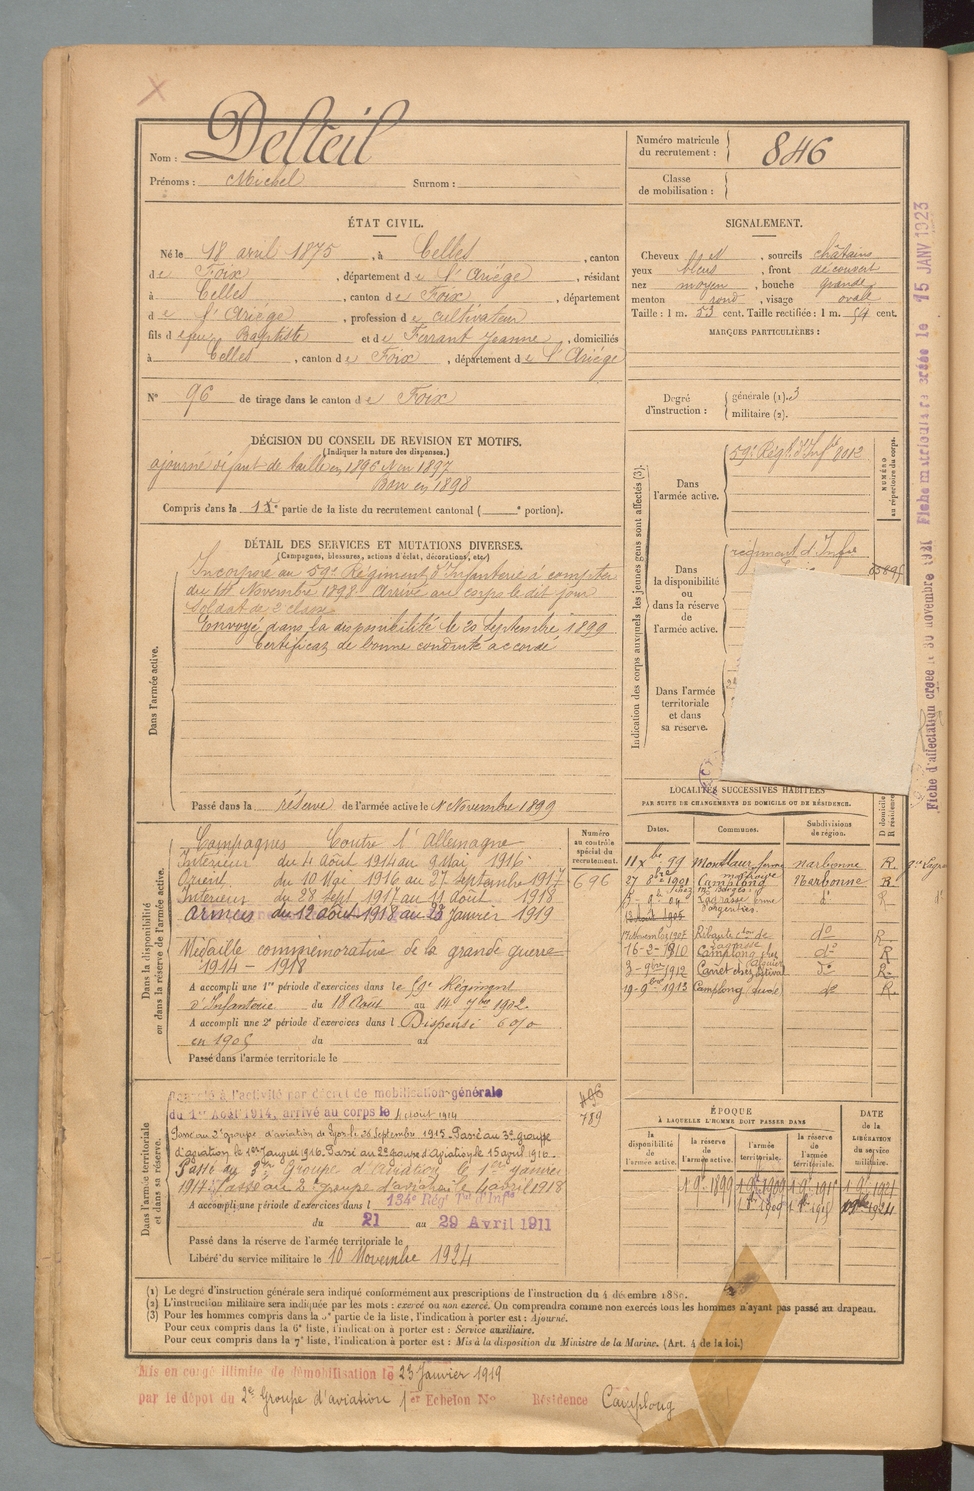 Nom : Delteil
Prénoms : Michel Surnom :
Numéro matricule du recrutement : 846
Classe de mobilisation :
ÉTAT CIVIL.
Né le 18 avril 1875, à Celles, canton
de Foix, département de l'Ariège, résidant
à Celles, canton de Foix, département
de l'Ariège, profession de cultivateur
fils de feu Baptiste et de Ferrant Jeanne, domiciliés
à Celles, canton de Foix, département de l'Ariège
N° 96 de tirage dans le canton de Foix
SIGNALEMENT.
Cheveux , sourcils châtains
yeux bleus, front découvert
nez moyen, bouche grande
menton rond, visage ovale
Taille : 1 m. 53 cent. Taille rectifiée : 1 m. 54 cent.
MARQUES PARTICULIÈRES :
Degré d'instruction : générale (1). 3
militaire (2).
DÉCISION DU CONSEIL DE REVISION ET MOTIFS.
(Indiquer la nature des dispenses.)
ajourné défaut de taille en 1896 & en 1897
Bon en 1898
Compris dans la partie de la liste du recrutement cantonal ( e portion).
DÉTAIL DES SERVICES ET MUTATIONS DIVERSES.
(Campagnes, blessures, actions d'éclat, décorations, etc.)
Dans l'armée active.
Incorporé au 59e Régiment d'Infanterie à compter
du 14 Novembre 1898. Arrivé au corps le dit jour
Soldat de 2e classe
Envoyé dans la disponibilité le 20 septembre 1899
Certificat de bonne conduite accordé
Passé dans la réserve de l'armée active le 1 Novembre 1899
Indication des corps auxquels les jeunes gens sont affectés (3).
Dans l'armée active.
59e Régt d'Infie
NUMÉRO au répertoire du corps.
Dans la disponibilité ou dans la réserve de l'armée active.
régiment d'Infie
Dans l'armée territoriale et dans sa réserve.
Dans la disponibilité ou dans la réserve de l'armée active.
Campagnes Contre l'Allemagne
Intérieur du 4 août 1914 au 9 Mai 1916
Orient du 10 Mai 1916 au 27 septembre 1917
Intérieur du 28 sept 1917 au 11 août 1918
Armées du 12 août 1918 au 23 janvier 1919
Médaille commémorative de la grande guerre
1914 – 1918
A accompli une 1re période d'exercices dans le 59e Régiment
d'Infanterie du 18 Août au 14 7bre 1902.
A accompli une 2e période d'exercices dans l Dispensé 6 0/0
en 1905 du au
Passé dans l'armée territoriale le
Numéro au contrôle spécial du recrutement.
696
LOCALITÉS SUCCESSIVES HABITÉES
PAR SUITE DE CHANGEMENTS DE DOMICILE OU DE RÉSIDENCE.
Dates. Communes. Subdivisions de région. D domicile R résidence
11 Xbre 99 Montlaur Narbonne R
27 8bre 1901 Camplong Narbonne R
Lagrasse do R
17 Novembre 1905 Ribaute do R
16-2-1910 Camplong do R
3-9bre 1912 Canet do R
19-9bre 1913 Camplong do R
Dans l'armée territoriale et dans sa réserve.
Rappelé à l'activité par décret de mobilisation générale
du 1er Août 1914, arrivé au corps le 4 août 1914
Passé au 2e groupe d'aviation de Lyon le 26 Septembre 1915. Passé au 3e groupe
d'aviation le 1er Janvier 1916. Passé au 2e groupe d'aviation le 15 avril 1916.
Passé du 3e Groupe d'aviation le 1er janvier
1917. Passé au 2e groupe d'aviation le 4 avril 1918
A accompli une période d'exercices dans l 134e Rég Tal d'Infie
du 21 au 29 Avril 1911
Passé dans la réserve de l'armée territoriale le
Libéré du service militaire le 10 Novembre 1924
789
ÉPOQUE
À LAQUELLE L'HOMME DOIT PASSER DANS
la disponibilité de l'armée active. la réserve de l'armée active. l'armée territoriale. la réserve de l'armée territoriale.
DATE de la LIBÉRATION du service militaire.
(1) Le degré d'instruction générale sera indiqué conformément aux prescriptions de l'instruction du 4 décembre 1889.
(2) L'instruction militaire sera indiquée par les mots : exercé ou non exercé. On comprendra comme non exercés tous les hommes n'ayant pas passé au drapeau.
(3) Pour les hommes compris dans la 5e partie de la liste, l'indication à porter est : Ajourné.
Pour ceux compris dans la 6e liste, l'indication à porter est : Service auxiliaire.
Pour ceux compris dans la 7e liste, l'indication à porter est : Mis à la disposition du Ministre de la Marine. (Art. 4 de la loi.)
Mis en congé illimité de démobilisation le 23 Janvier 1919
par le dépôt du 2e Groupe d'aviation 1er Echelon No Résidence Camplong
Fiche d'affectation créée le 30 novembre 1921 Fiche matriculaire créée le 15 JANV 1923